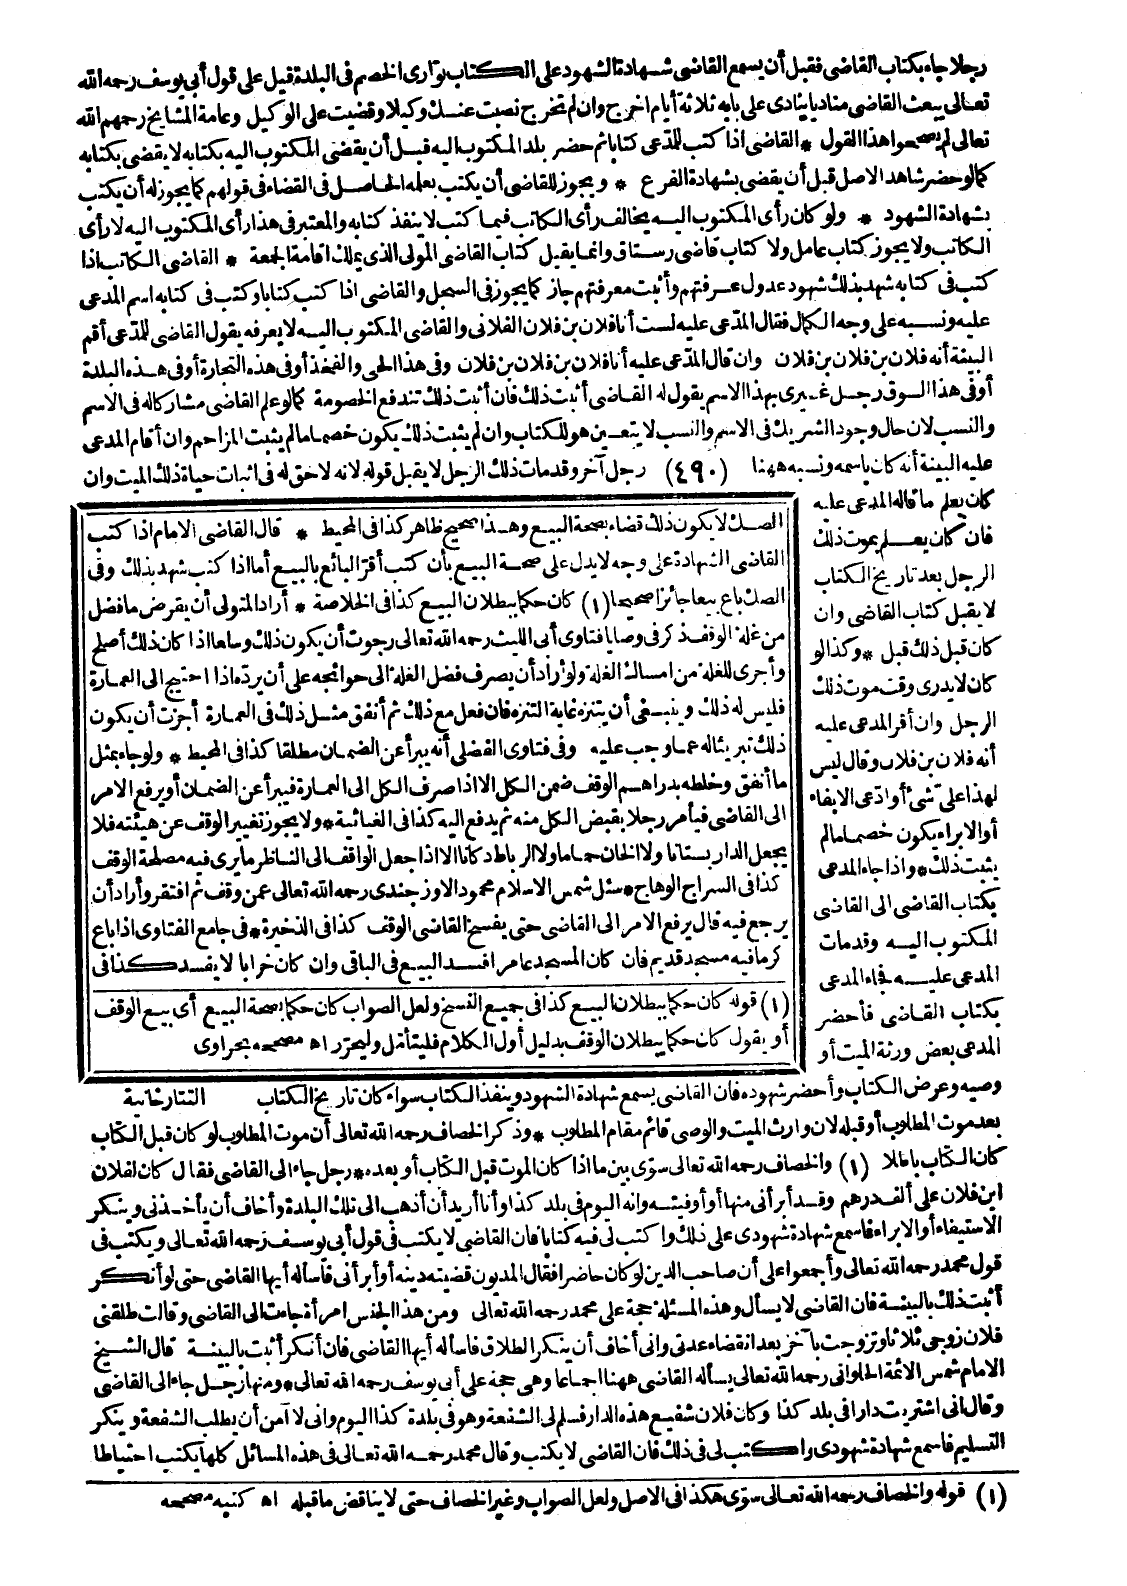 رجلا جاء بكتاب القاضى فقبل أن يسمع القاضى شهادة الشهود على الكتاب توارى الخصم فى البلدة قيل على قول أبى يوسف رحمه الله
تعالى يبعث القاضى مناديا ينادى على بابه ثلاثة أيام اخرج وان لم تخرج نصبت عنك وكيلا وقضيت على الوكيل وعامة المشايخ رحمهم الله
تعالى لم يصححوا هذا القول * القاضى اذا كتب للمدعى كتابا ثم حضر بلد المكتوب اليه قبل أن يقضى المكتوب اليه بكتابه لا يقضى بكتابه
كما لو حضر شاهد الاصل قبل أن يقضى بشهادة الفرع * ويجوز للقاضى أن يكتب بعلمه الحاصل فى القضاء فى قولهم كما يجوز له أن يكتب
بشهادة الشهود * ولو كان رأى المكتوب اليه يخالف رأى الكاتب فيما كتب لا ينفذ كتابه والمعتبر فى هذا رأى المكتوب اليه لا رأى
الكاتب ولا يجوز كتاب عامل ولا كتاب قاضى رستاق وانما يقبل كتاب القاضى المولى الذى يملك اقامة الجمعة * القاضى الكاتب اذا
كتب فى كتابه شهد بذلك شهود عدول عرفتهم وأثبت معرفتهم جاز كما يجوز فى السجل والقاضى اذا كتب كتابا وكتب فى كتابه اسم المدعى
عليه ونسبه على وجه الكمال فقال المدعى عليه لست أنا فلان بن فلان الفلانى والقاضى المكتوب اليه لا يعرفه يقول القاضى للمدعى أقم
البينة أنه فلان بن فلان بن فلان وان قال المدعى عليه أنا فلان بن فلان بن فلان وفى هذا الحى والفخذ أو فى هذه التجارة أو فى هذه البلدة
أو فى هذا السوق رجل غيرى بهذا الاسم يقول له القاضى أثبت ذلك فان أثبت ذلك تندفع الخصومة كما لو علم القاضى مشاركا له فى الاسم
والنسب لان حال وجود الشريك فى الاسم والنسب لا يتعين هو للكتاب وان لم يثبت ذلك يكون خصما ما لم يثبت المزاحم وان أقام المدعى
عليه البينة أنه كان باسمه ونسبه ههنا (٤٩٠) رجل آخر وقد مات ذلك الرجل لا يقبل قوله لانه لا حق له فى اثبات حياة ذلك الميت وان
كان يعلم ما قاله المدعى عليه
فان كان يعلم بموت ذلك
الرجل بعد تاريخ الكتاب
لا يقبل كتاب القاضى وان
كان قبل ذلك قبل * وكذا لو
كان لا يدرى وقت موت ذلك
الرجل وان أقر المدعى عليه
أنه فلان بن فلان وقال ليس
لهذا على شئ أو ادعى الايفاء
أو الابراء يكون خصما ما لم
يثبت ذلك * واذا جاء المدعى
بكتاب القاضى الى القاضى
المكتوب اليه وقد مات
المدعى عليه فجاء المدعى
بكتاب القاضى فأحضر
المدعى بعض ورثة الميت أو
الصك لا يكون ذلك قضاء بصحة البيع وهذا صحيح ظاهر كذا فى المحيط * قال القاضى الامام اذا كتب
القاضى الشهادة على وجه لا يدل على صحة البيع بأن كتب أقر البائع بالبيع أما اذا كتب شهد بذلك وفى
الصك باع بيعا جائزا صحيحا (١) كان حكما ببطلان البيع كذا فى الخلاصة * أراد المتولى أن يقرض ما فضل
من غلة الوقف ذكر فى وصايا فتاوى أبى الليث رحمه الله تعالى رجوت أن يكون ذلك وسعا اذا كان ذلك أصلح
وأجرى للغلة من امساك الغلة ولو أراد أن يصرف فضل الغلة الى حوائجه على أن يرده اذا احتيج الى العمارة
فليس له ذلك وينبغى أن يتنزه غاية التنزه فان فعل مع ذلك ثم أنفق مثل ذلك فى العمارة أجزت أن يكون
ذلك تبرئاله عما وجب عليه وفى فتاوى الفضلى أنه يبرأ عن الضمان مطلقا كذا فى المحيط * ولو جاء بمثل
ما أنفق وخلطه بدراهم الوقف ضمن الكل الا اذا صرف الكل الى العمارة فيبرأ عن الضمان أو يرفع الامر
الى القاضى فيأمر رجلا بقبض الكل منه ثم يدفع اليه كذا فى الغياثية * ولا يجوز تغيير الوقف عن هيئته فلا
يجعل الدار بستانا ولا الخان حماما ولا الرباط دكانا الا اذا جعل الواقف الى الناظر ما يرى فيه مصلحة الوقف
كذا فى السراج الوهاج * سئل شمس الاسلام محمود الاوزجندى رحمه الله تعالى عمن وقف ثم افتقر وأراد أن
يرجع فيه قال يرفع الامر الى القاضى حتى يفسخ القاضى الوقف كذا فى الذخيرة * فى جامع الفتاوى اذا باع
كرما فيه مسجد قديم فان كان المسجد عامرا فسد البيع فى الباقى وان كان خرابا لا يفسد كذا فى
(١) قوله كان حكما ببطلان البيع كذا فى جميع النسخ ولعل الصواب كان حكما بصحة البيع أى بيع الوقف
أو يقول كان حكما ببطلان الوقف بدليل أول الكلام فليتأمل وليحرر اه مصححه بحراوى
وصيه وعرض الكتاب وأحضر شهوده فان القاضى يسمع شهادة الشهود وينفذ الكتاب سواء كان تاريخ الكتاب التتارخانية
بعد موت المطلوب أو قبله لان وارث الميت والوصى قائم مقام المطلوب * وذكر الخصاف رحمه الله تعالى أن موت المطلوب لو كان قبل الكتاب
كان الكتاب باطلا (١) والخصاف رحمه الله تعالى سوى بين ما اذا كان الموت قبل الكتاب أو بعده * رجل جاء الى القاضى فقال كان لفلان
ابن فلان على ألف درهم وقد أبرأنى منها أو أوفيته وانه اليوم فى بلد كذا وأنا أريد أن أذهب الى تلك البلدة وأخاف أن يأخذنى وينكر
الاستيفاء أو الابراء فاسمع شهادة شهودى على ذلك واكتب لى فيه كتابا فان القاضى لا يكتب فى قول أبى يوسف رحمه الله تعالى ويكتب فى
قول محمد رحمه الله تعالى وأجمعوا على أن صاحب الدين لو كان حاضرا فقال المديون قضيته دينه أو أبرأنى فاسأله أيها القاضى حتى لو أنكر
أثبت ذلك بالبينة فان القاضى لا يسأل وهذه المسئلة حجة على محمد رحمه الله تعالى ومن هذا الجنس امرأة جاءت الى القاضى وقالت طلقنى
فلان زوجى ثلاثا وتزوجت بآخر بعد انقضاء عدتى وانى أخاف أن ينكر الطلاق فاسأله أيها القاضى فان أنكر أثبت بالبينة قال الشيخ
الامام شمس الائمة الحلوانى رحمه الله تعالى يسأله القاضى ههنا اجماعا وهى حجة على أبى يوسف رحمه الله تعالى * ومنها رجل جاء الى القاضى
وقال انى اشتريت دارا فى بلد كذا وكان فلان شفيع هذه الدار فسلم لى الشفعة وهو فى بلدة كذا اليوم وانى لا آمن أن يطلب الشفعة وينكر
التسليم فاسمع شهادة شهودى واكتب لى فى ذلك فان القاضى لا يكتب وقال محمد رحمه الله تعالى فى هذه المسائل كلها يكتب احتياطا
(١) قوله والخصاف رحمه الله تعالى سوى هكذا فى الاصل ولعل الصواب وغير الخصاف حتى لا يناقض ما قبله اه كتبه مصححه